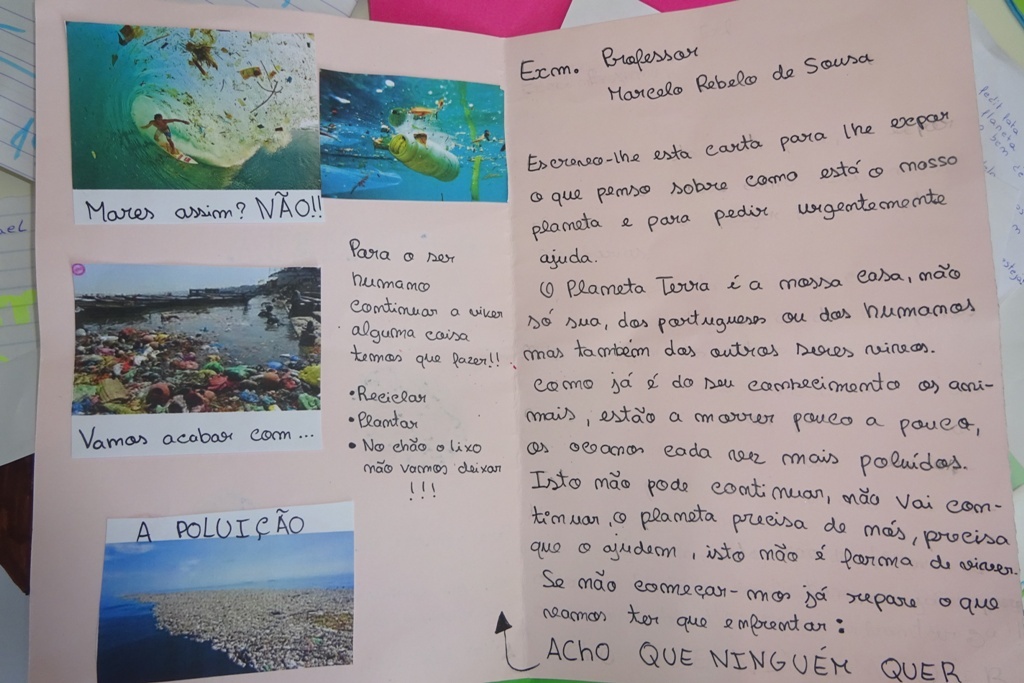 Mares assim? NÃO!!
Vamos acabar com...
A POLUIÇÃO
Para o ser
humano
continuar a viver
alguma coisa
temos que fazer!!
• Reciclar
• Plantar
• No chão o lixo
não vamos deixar
!!!
Exm. Professor
Marcelo Rebelo de Sousa
Escrevo-lhe esta carta para lhe expor
o que penso sobre como está o nosso
planeta e para pedir urgentemente
ajuda.
O Planeta Terra é a nossa casa, não
só sua, dos portugueses ou dos humanos
mas também dos outros seres vivos.
Como já é do seu conhecimento os ani-
mais, estão a morrer pouco a pouco,
os oceanos cada vez mais poluídos.
Isto não pode continuar, não vai con-
tinuar, o planeta precisa de nós, precisa
que o ajudem, isto não é forma de viver.
Se não começar-mos já repare o que
vamos ter que enfrentar:
ACHO QUE NINGUÉM QUER